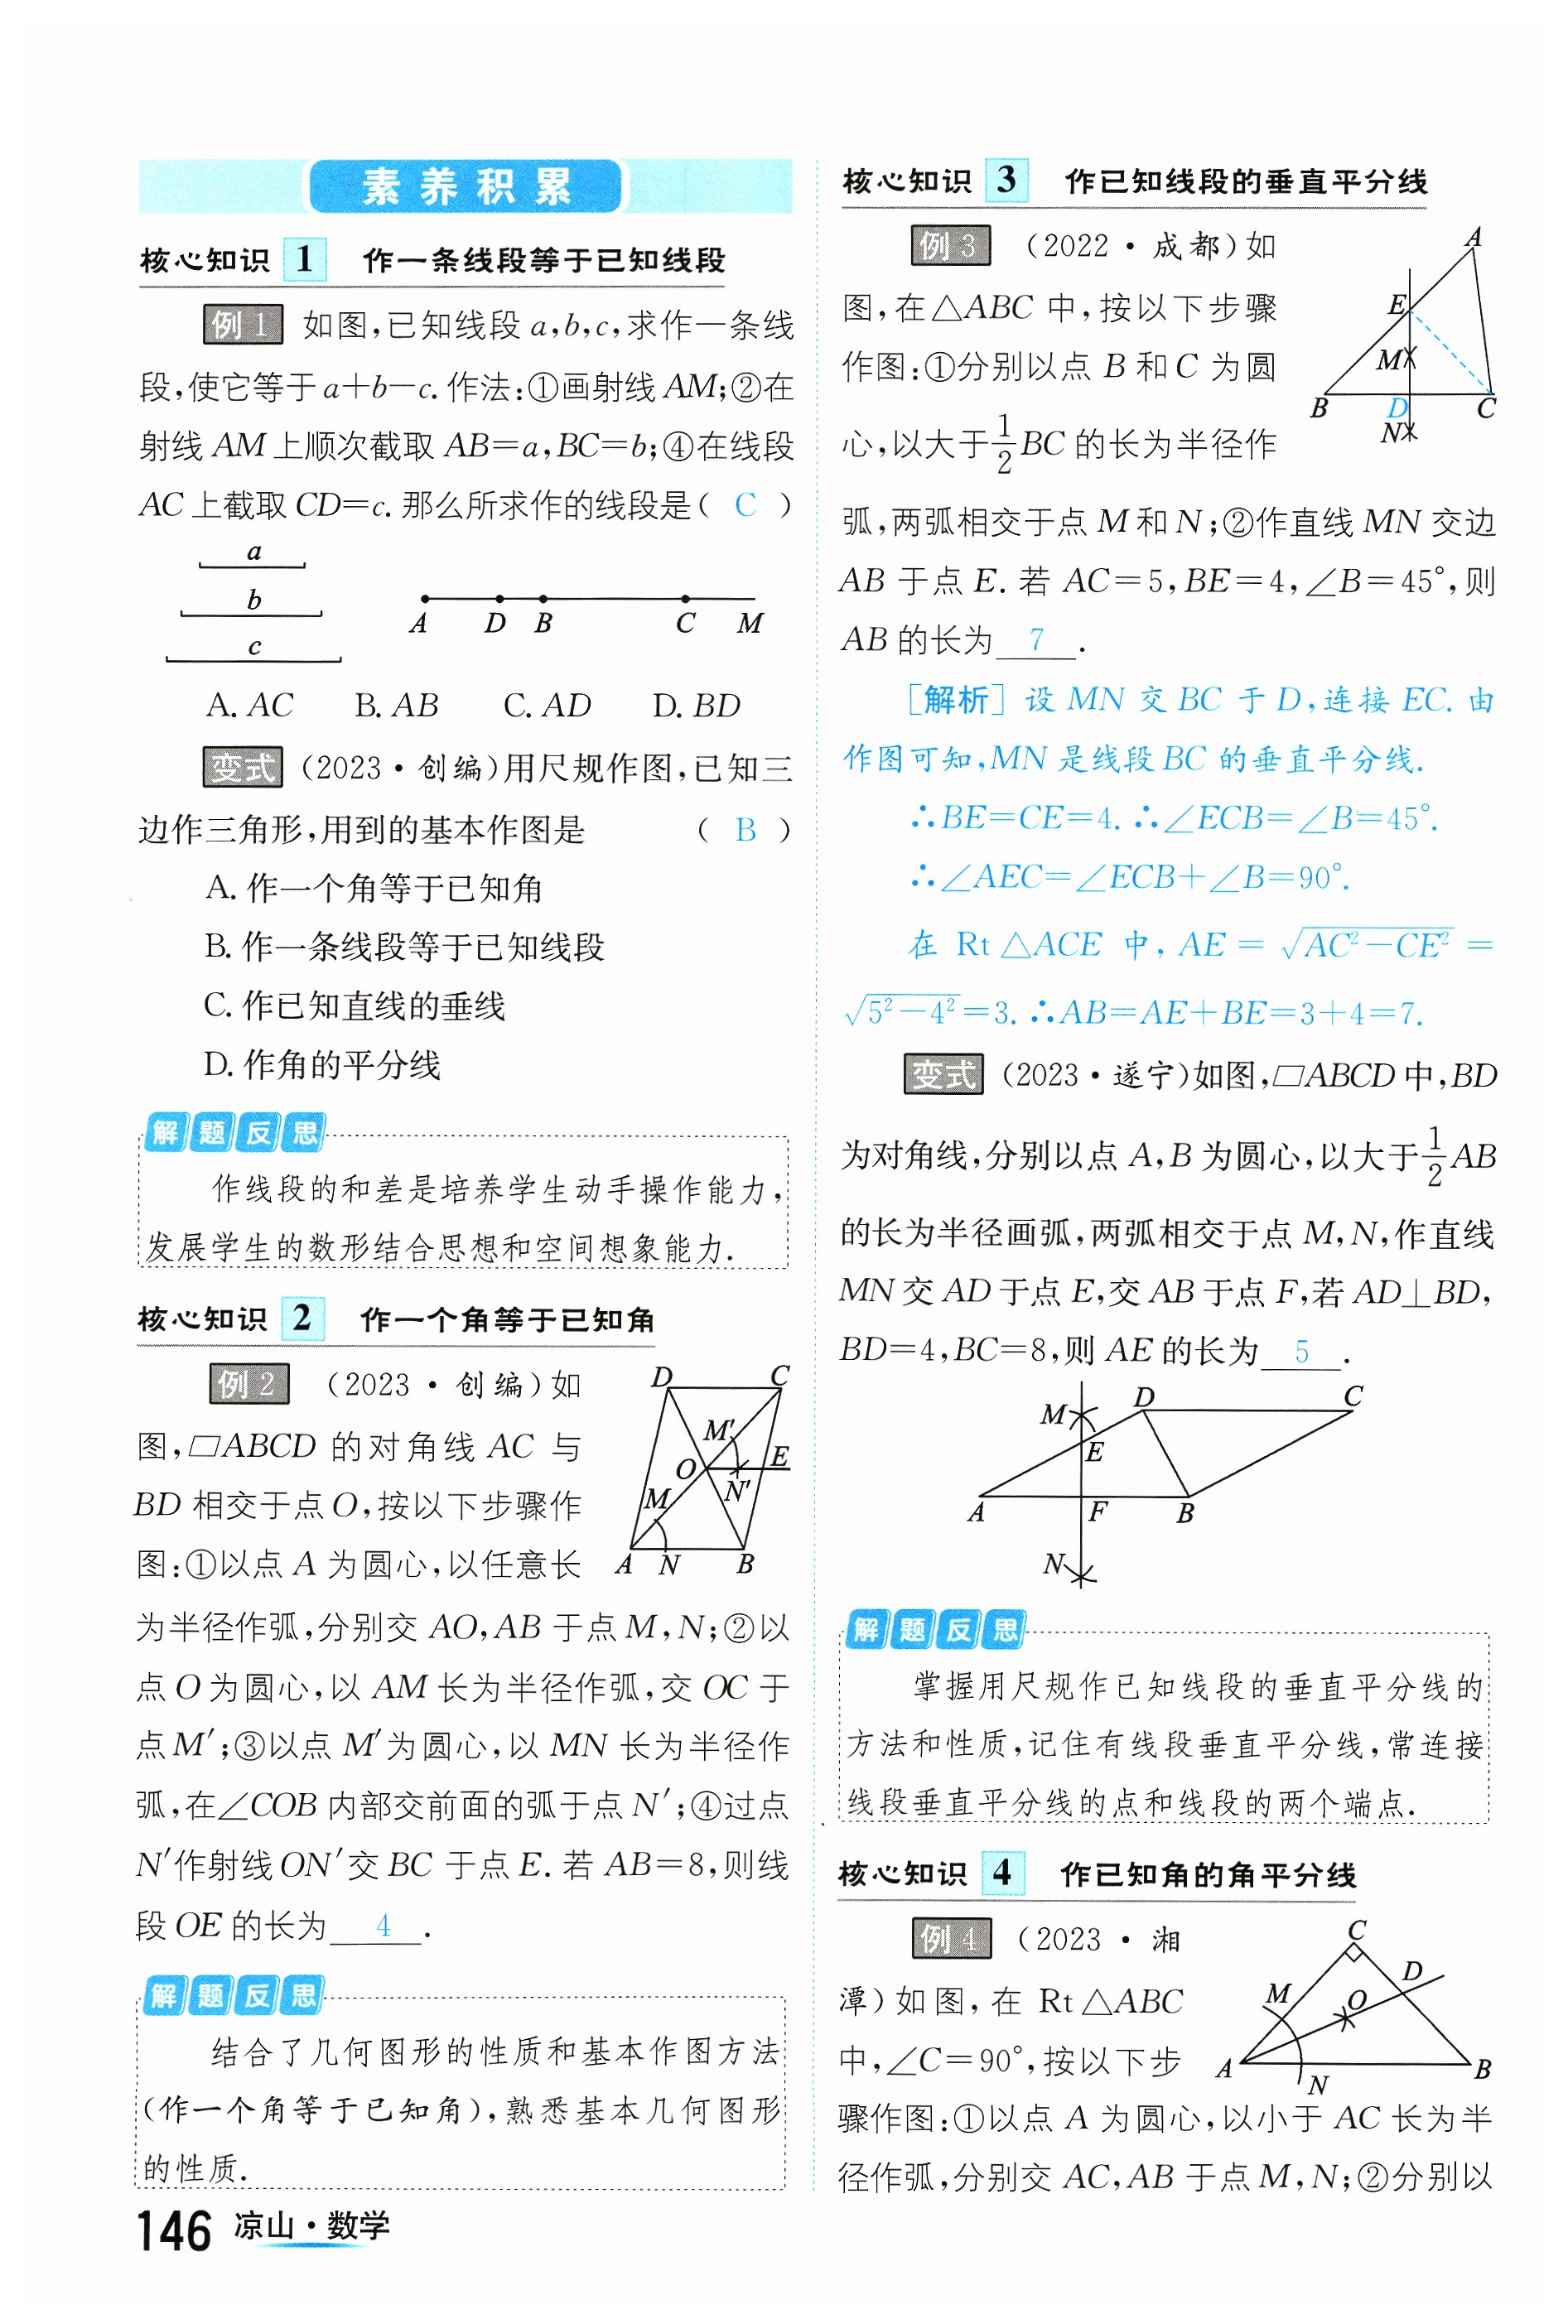 素养积累
核心知识 1 作一条线段等于已知线段
例1 如图,已知线段 a,b,c,求作一条线
段,使它等于 a+b-c. 作法:①画射线 AM;②在
射线 AM 上顺次截取 AB=a,BC=b;④在线段
AC 上截取 CD=c. 那么所求作的线段是( C )
a
b
c
A D B C M
A. AC B. AB C. AD D. BD
变式 (2023·创编)用尺规作图,已知三
边作三角形,用到的基本作图是 ( B )
A. 作一个角等于已知角
B. 作一条线段等于已知线段
C. 作已知直线的垂线
D. 作角的平分线
解题反思
作线段的和差是培养学生动手操作能力,
发展学生的数形结合思想和空间想象能力.
核心知识 2 作一个角等于已知角
例2 (2023·创编)如
图,▱ABCD 的对角线 AC 与
BD 相交于点 O,按以下步骤作
图:①以点 A 为圆心,以任意长
为半径作弧,分别交 AO,AB 于点 M,N;②以
点 O 为圆心,以 AM 长为半径作弧,交 OC 于
点 M′;③以点 M′为圆心,以 MN 长为半径作
弧,在∠COB 内部交前面的弧于点 N′;④过点
N′作射线 ON′交 BC 于点 E. 若 AB=8,则线
段 OE 的长为 4 .
D C
M′
O E
M N′
A N B
解题反思
结合了几何图形的性质和基本作图方法
(作一个角等于已知角),熟悉基本几何图形
的性质.
146 凉山·数学
核心知识 3 作已知线段的垂直平分线
例3 (2022·成都)如
图,在△ABC 中,按以下步骤
作图:①分别以点 B 和 C 为圆
心,以大于1/2BC 的长为半径作
弧,两弧相交于点 M 和 N;②作直线 MN 交边
AB 于点 E. 若 AC=5,BE=4,∠B=45°,则
AB 的长为 7 .
A
E
M
B D C
N
[解析] 设 MN 交 BC 于 D,连接 EC. 由
作图可知,MN 是线段 BC 的垂直平分线.
∴BE=CE=4. ∴∠ECB=∠B=45°.
∴∠AEC=∠ECB+∠B=90°.
在 Rt△ACE 中,AE=√(AC²-CE²)=
√(5²-4²)=3. ∴AB=AE+BE=3+4=7.
变式 (2023·遂宁)如图,▱ABCD 中,BD
为对角线,分别以点 A,B 为圆心,以大于1/2AB
的长为半径画弧,两弧相交于点 M,N,作直线
MN 交 AD 于点 E,交 AB 于点 F,若 AD⊥BD,
BD=4,BC=8,则 AE 的长为 5 .
M D C
E
A F B
N
解题反思
掌握用尺规作已知线段的垂直平分线的
方法和性质,记住有线段垂直平分线,常连接
线段垂直平分线的点和线段的两个端点.
核心知识 4 作已知角的角平分线
例4 (2023·湘
潭)如图,在 Rt△ABC
中,∠C=90°,按以下步
骤作图:①以点 A 为圆心,以小于 AC 长为半
径作弧,分别交 AC,AB 于点 M,N;②分别以
C
D
M O
A B
N